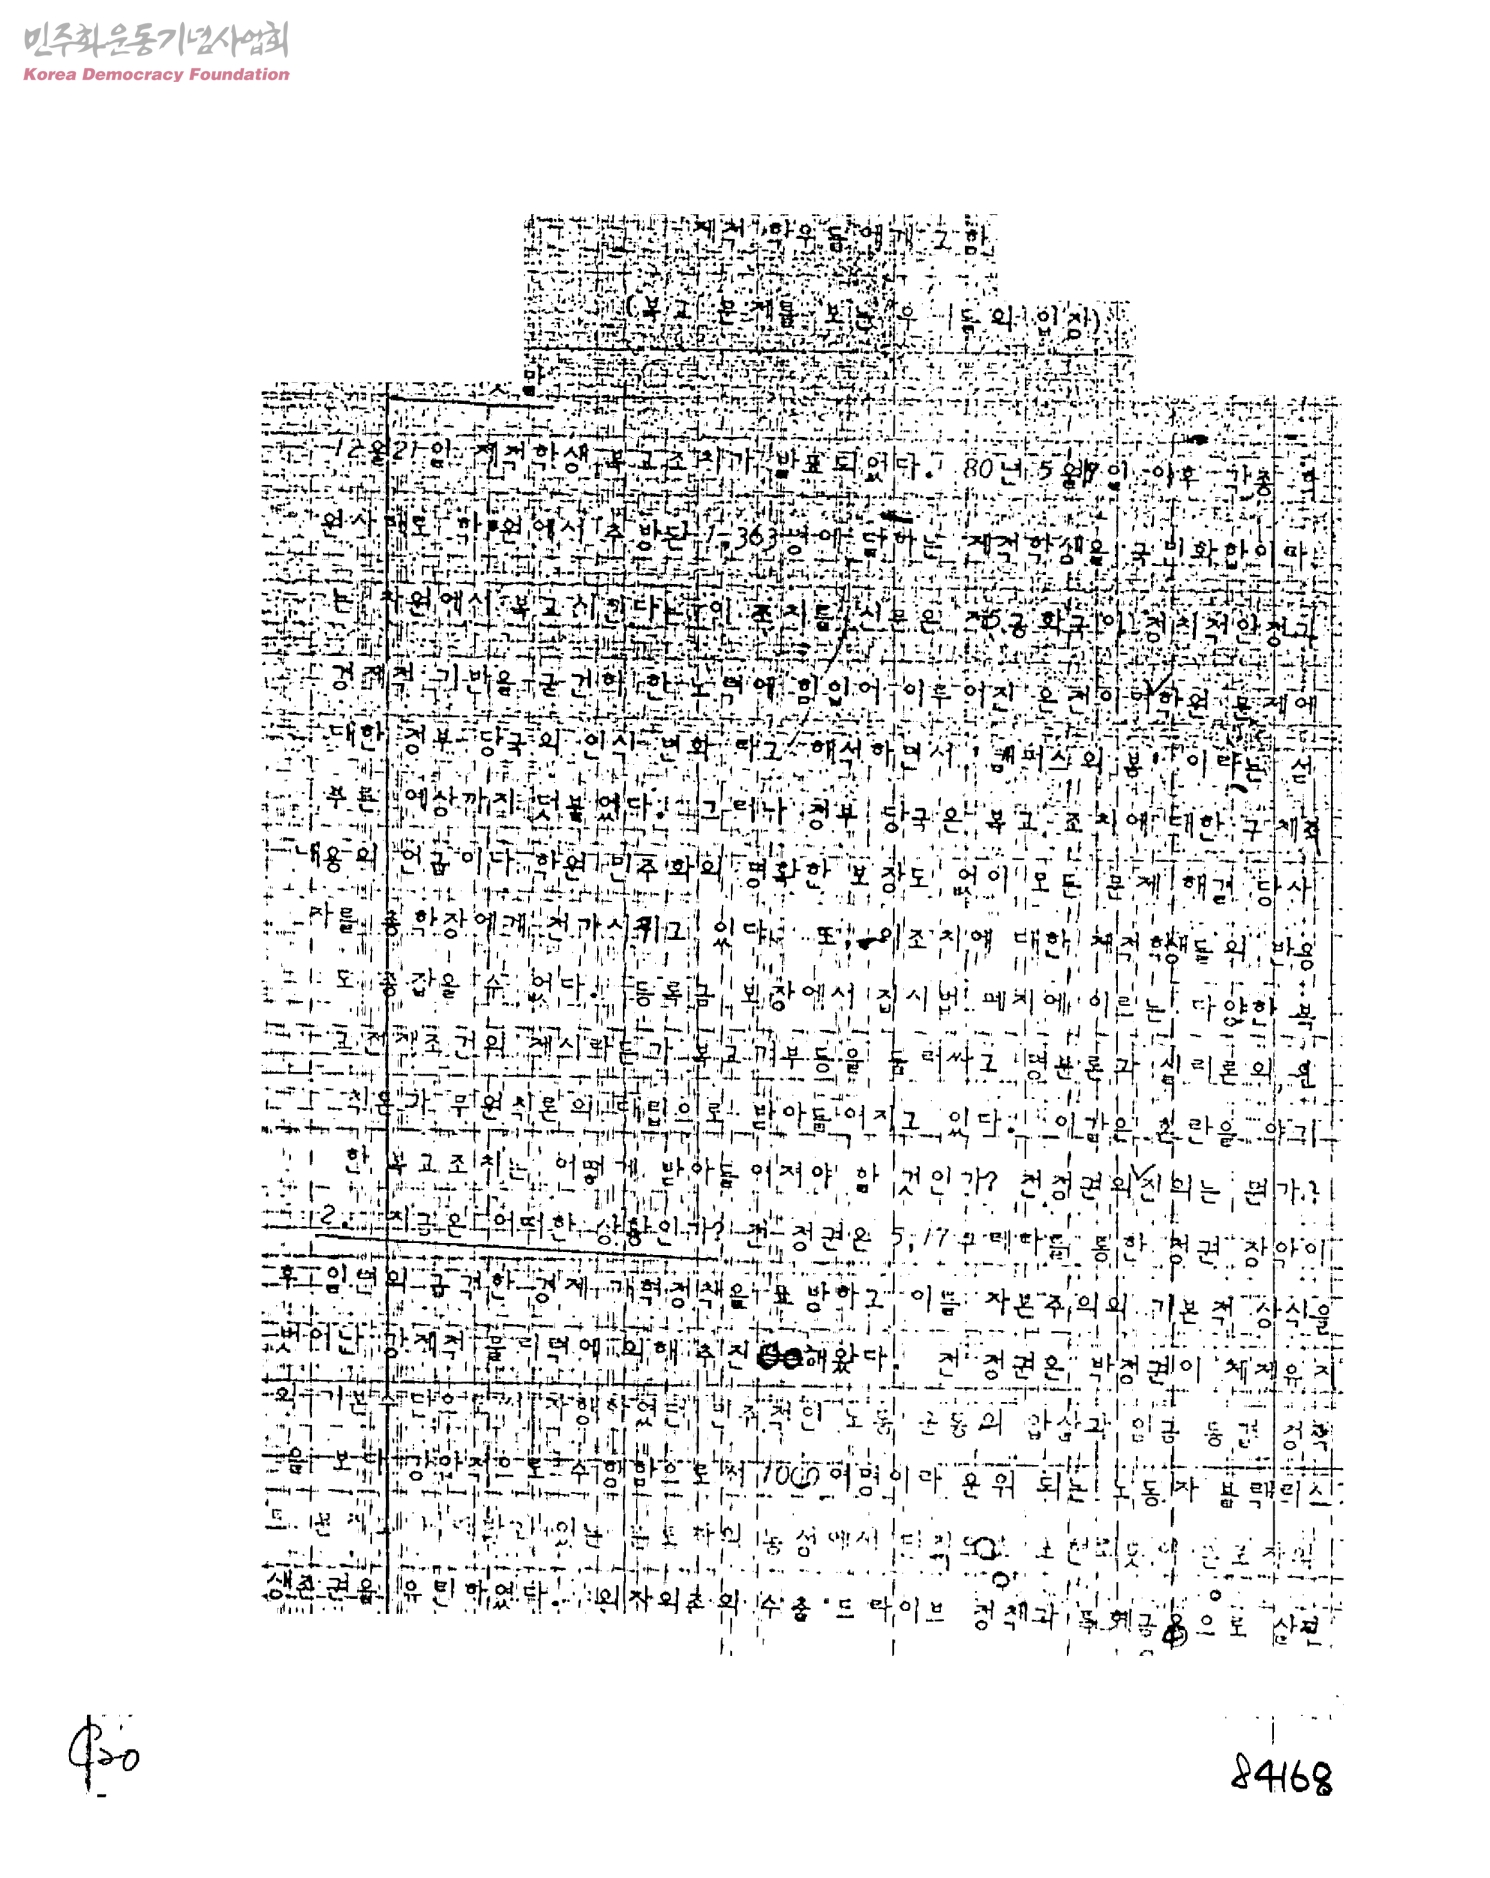 민주화운동기념사업회
Korea Democracy Foundation
제적 학우들에게 고함
(복교 문제를 보는 우리들의 입장)
12월21일 제적학생 복교조치가 발표되었다. 80년 5월17일 이후 각종 학
원사태로 학원에서 추방된 1,363명에 달하는 제적학생을 국민화합이라
는 차원에서 복교시킨다는 이 조치를 신문은 제5공화국이 정치적안정과
경제적 기반을 굳건히 한 노력에 힘입어 이루어진 은전이며 학원 문제에
대한 정부 당국의 인식 변화 라고 해석하면서 '캠퍼스의 봄' 이라는 섣
부른 예상까지 덧붙였다. 그러나 정부 당국은 복교 조치에 대한 구체적
내용의 언급이나 학원 민주화의 명확한 보장도 없이 모든 문제 해결 당사
자를 총학장에게 전가시키고 있다. 또, 이조치에 대한 제적학생들의 반응
도 종잡을 수 없다. 등록금 보장에서 집시법 폐지에 이르는 다양한 복
교전제조건의 제시라든가 복교거부등을 둘러싸고 명분론과 실리론의, 원
칙론가 무원칙론의 대립으로 받아들여지고 있다. 이같은 혼란을 야기
한 복교조치는 어떻게 받아들여져야 할 것인가? 전정권의 진의는 뭔가?
2. 지금은 어떠한 상황인가? 전 정권은 5,17쿠데타를 통한 정권 장악이
후 일련의 급격한 경제 개혁정책을 표방하고 이를 자본주의의 기본적 상식을
벗어난 강제적 물리력에 의해 추진해왔다. 전 정권은 박정권이 체제유지
의 기본수단으로 자행하였던 반주적인 노동 운동의 압살과 임금 동결 정책
을 보다 강압적으로 수행함으로서 1000여명이라 운위 되는 노동자 블랙리스
트 농성에서 근로자의
생존권을 유린하였다. 외자의존의 수출 드라이브 정책과 특혜금융으로 살찐
84168